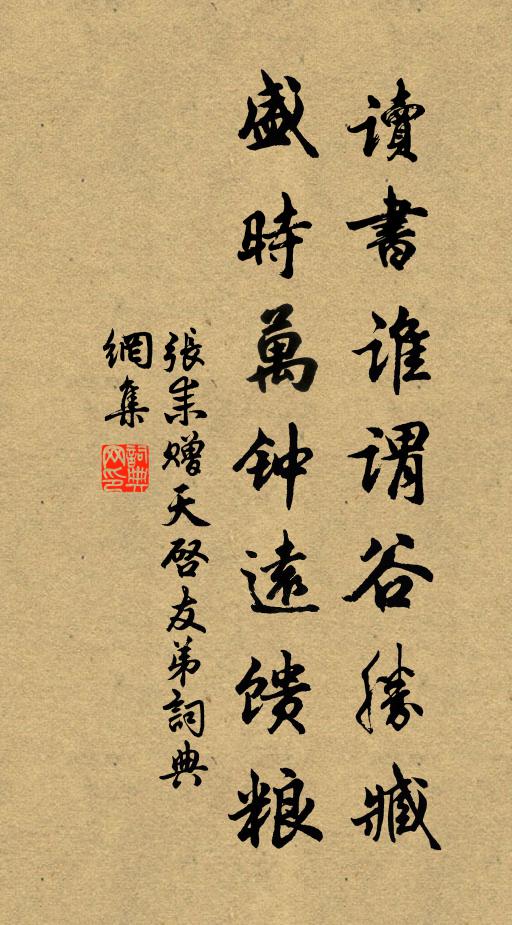 讀書誰謂谷勝臧
盛時萬钟遠馈粮
張耒赠天啓友弟詞典
網集
詞典网印